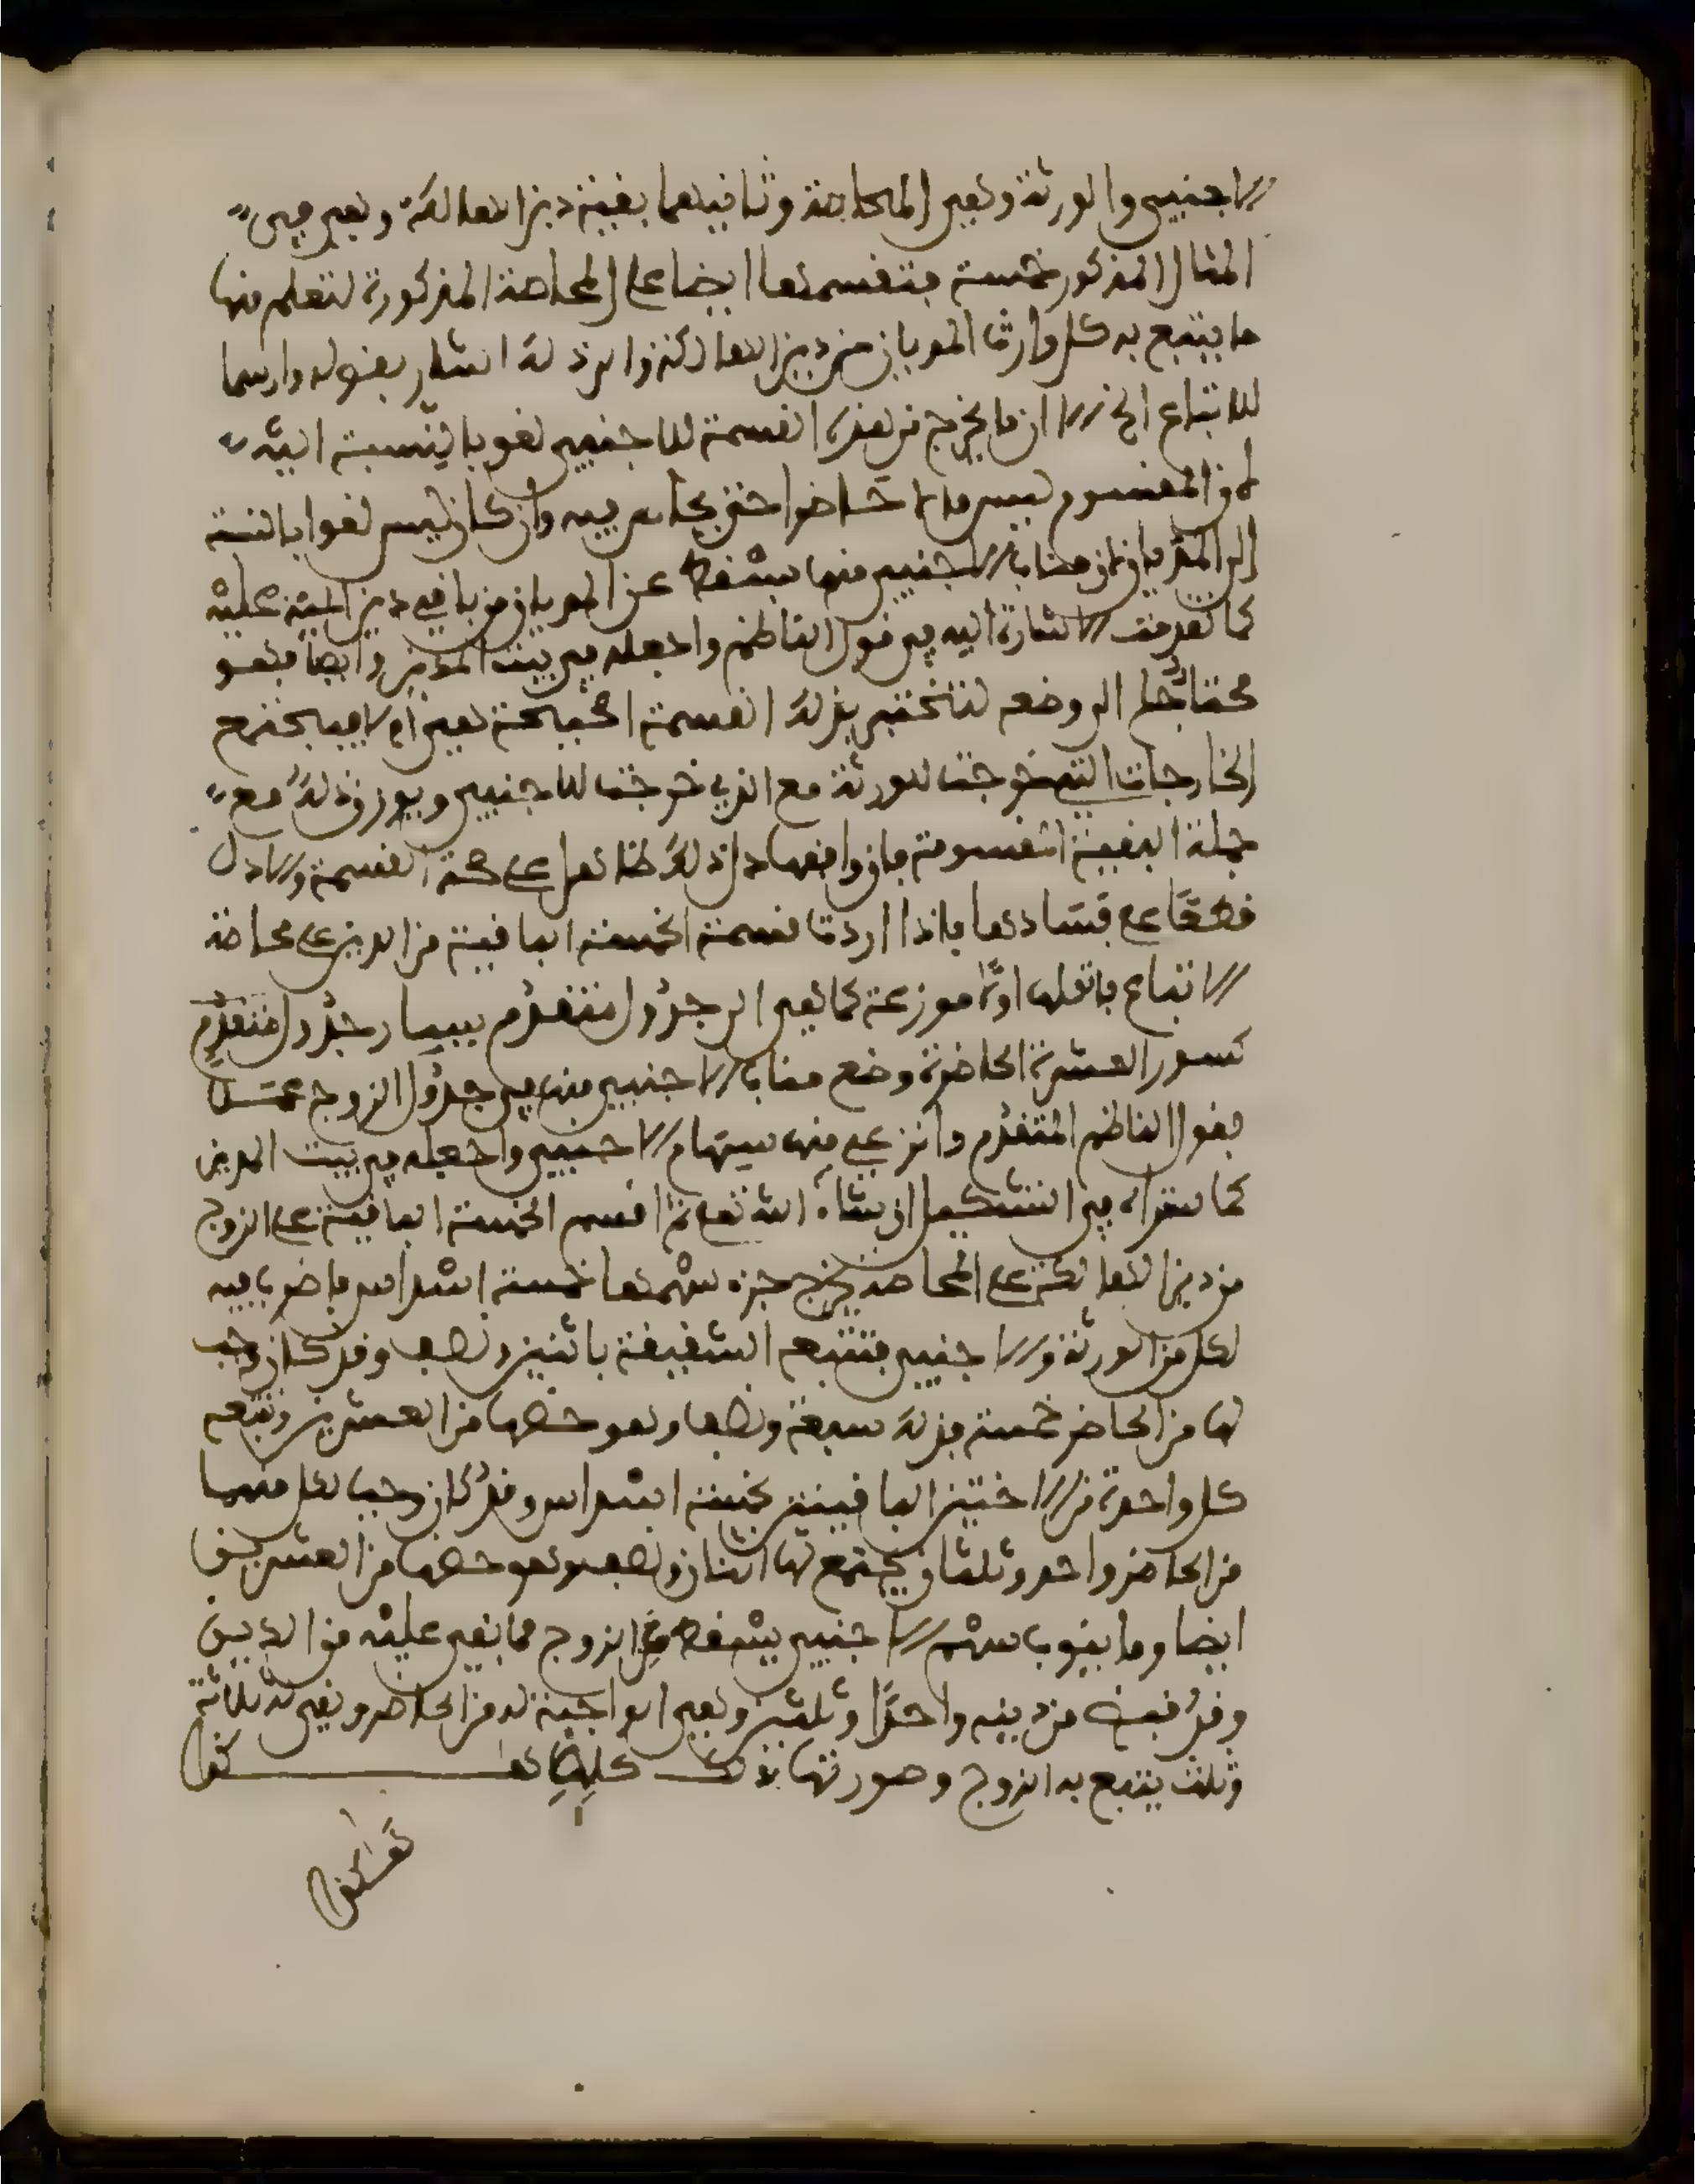 الاجنبي والورثة وهي المحاصة وثانيهما بقية دين الهالكة وهي في
المثال المذكور خمسة فتقسمها ايضا على المحاصة المذكورة لتعلم منها
ما يتبع به كل وارث المديان من دين الهالكة والى ذلك اشار بقوله وارسما
للاتباع الخ الا ان ما يخرج من هذه القسمة للاجنبي لغو بالنسبة اليه
لان المقسوم ليس مالا حاضرا حتى يحاص فيه وان كان ليس لغوا بالنسبة
الى المديان فان مناب الاجنبي منها يسقط عن المديان من باقي دين الميت عليه
كما تقدمت الاشارة اليه في قول الناظم واجعله في بيت المدين وايضا فهو
محتاج الى وضعه لتختبر بذلك القسمة اصحيحة هي ام لا فيجتمع
الخارجات التي خرجت للورثة مع الذي خرجت للاجنبي ويوزن ذلك مع
جملة البقية المقسومة فان وافقها دل ذلك ظاهرا على صحة القسمة والا دل
قطعا على فسادها فاذا اردت قسمة الخمسة الباقية من الدين على محاصة
الاتباع فانقلها اولا موزعة كما هي الى جدول متقدم بيسار جدول متقدم
كسور العشرة الحاضرة وضع مناب الاجنبي منها في جدول الزوج عملا
بقول الناظم المتقدم وانزع منها سهام الاجنبي واجعله في بيت المدين
كما ستراه في التشكيل ان شاء الله تعلى ثم اقسم الخمسة الباقية على الزوج
من دين الهالكة على المحاصة يخرج جزء سهمها خمسة اسداس فاضرب فيه
لكل من الورثة والاجنبي فتتبعه الشقيقة باثنين ونصف وقد كان وجب
لها من الحاضر خمسة فذلك سبعة ونصف وهو حظها من العشرين وتتبعه
كل واحدة من الاختين الباقيتين بخمسة اسداس وقد كان وجب لكل منهما
من الحاضر واحد وثلثان يجتمع لها اثنان ونصف وهو حظها من العشرين
ايضا وما ينوب سهم الاجنبي يسقط عن الزوج مما بقي عليه من الدين
وقد قبض من دينه واحدا وثلثين وهي الواجبة له من الحاضر وبقي له ثلاثة
وثلث يتبع به الزوج وصورتها